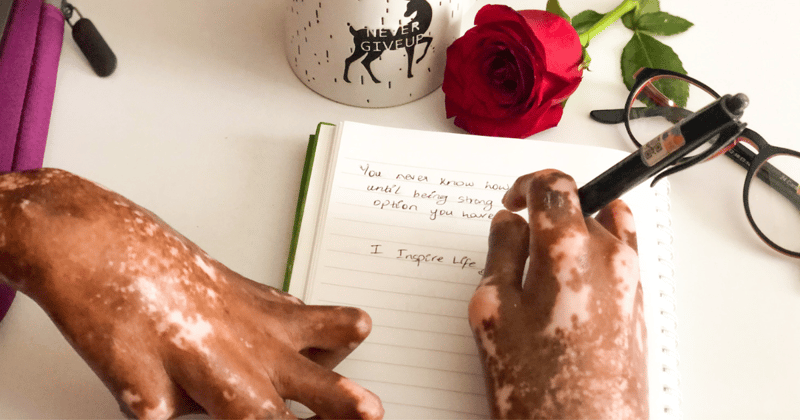 NEVER
GIVEUP
You never know how
until being strong
option you have
I Inspire Life